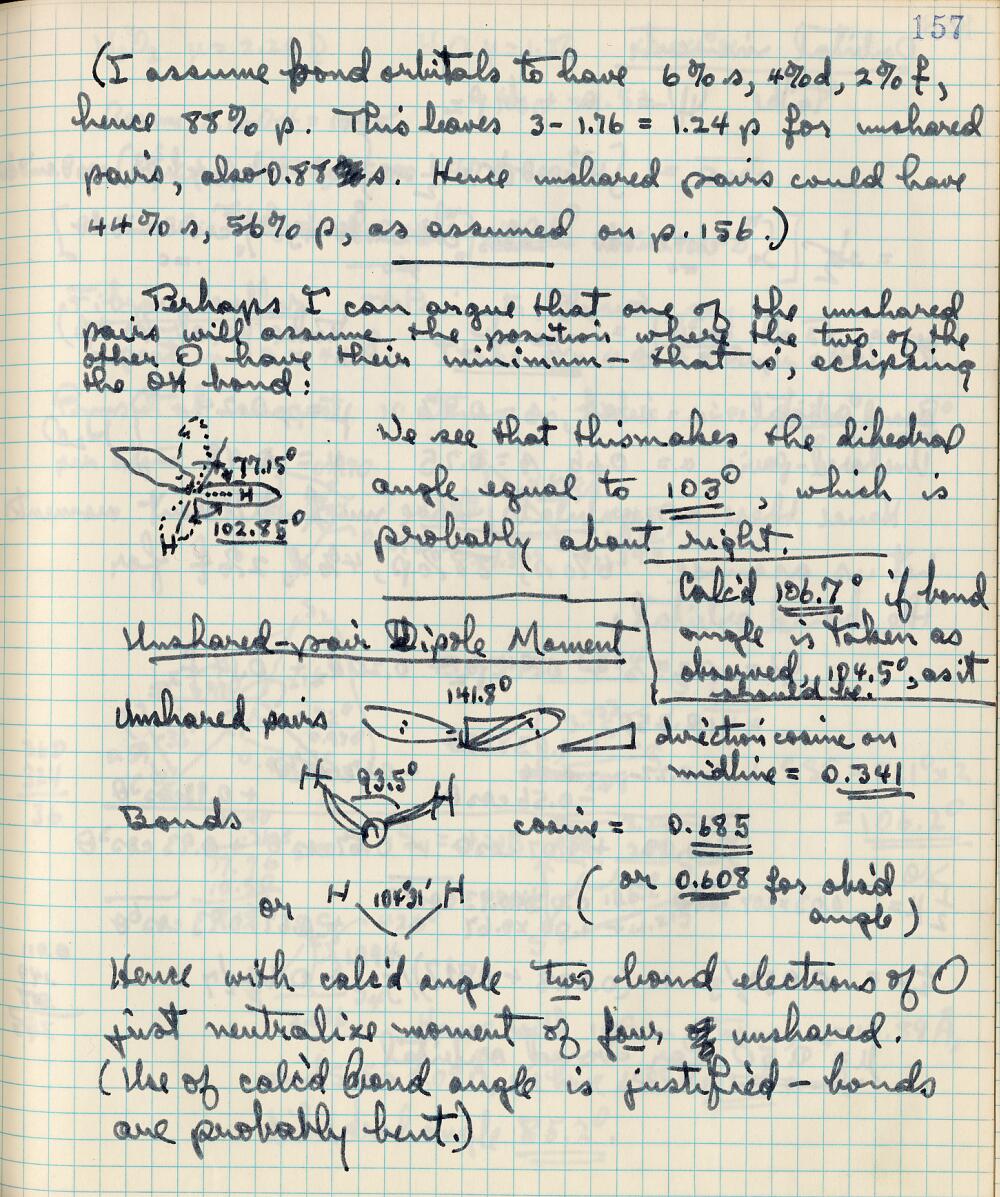 157
(I assume bond orbitals to have 6% s, 4% d, 2% f,
hence 88% p. This leaves 3 - 1.76 = 1.24 p for unshared
pairs, also 0.88 s. Hence unshared pairs could have
44% s, 56% p, as assumed on p. 156.)
Perhaps I can argue that one of the unshared
pairs will assume the position where the two of the
other O have their minimum — that is, eclipsing
the OH bond:
We see that this makes the dihedral
77.15°
H
angle equal to 103°, which is
102.85°
H
probably about right.
Calc'd 106.7° if bond
angle is taken as
observed, 104.5°, as it
should be.
Unshared-pair Dipole Moment
141.8°
Unshared pairs
direction cosine on
midline = 0.341
H 93.5° H
Bonds
O
cosine = 0.685
or H 104°31' H
(or 0.608 for obs'd
angle)
Hence with calc'd angle two bond electrons of O
just neutralize moment of four unshared.
(Use of calc'd bond angle is justified — bonds
are probably bent.)